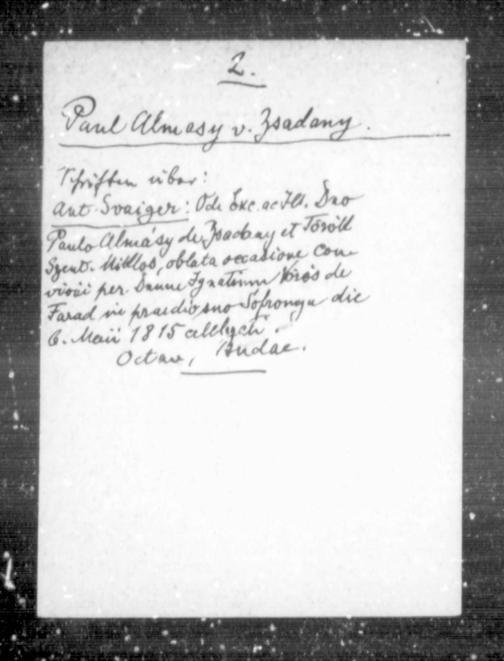 2.
Paul Almasy v. Zsadany.
Schriften über:
Ant. Svaiger: Ode Exc. ac Ill. Dno
Paulo Almásy de Zsadany et Török
Szent. Miklos, oblata occasione con-
vivii per Dnum Ignatium Vörös de
Farad in praedio suo Sofronya die
6. Maii 1815
Octav, Budae.